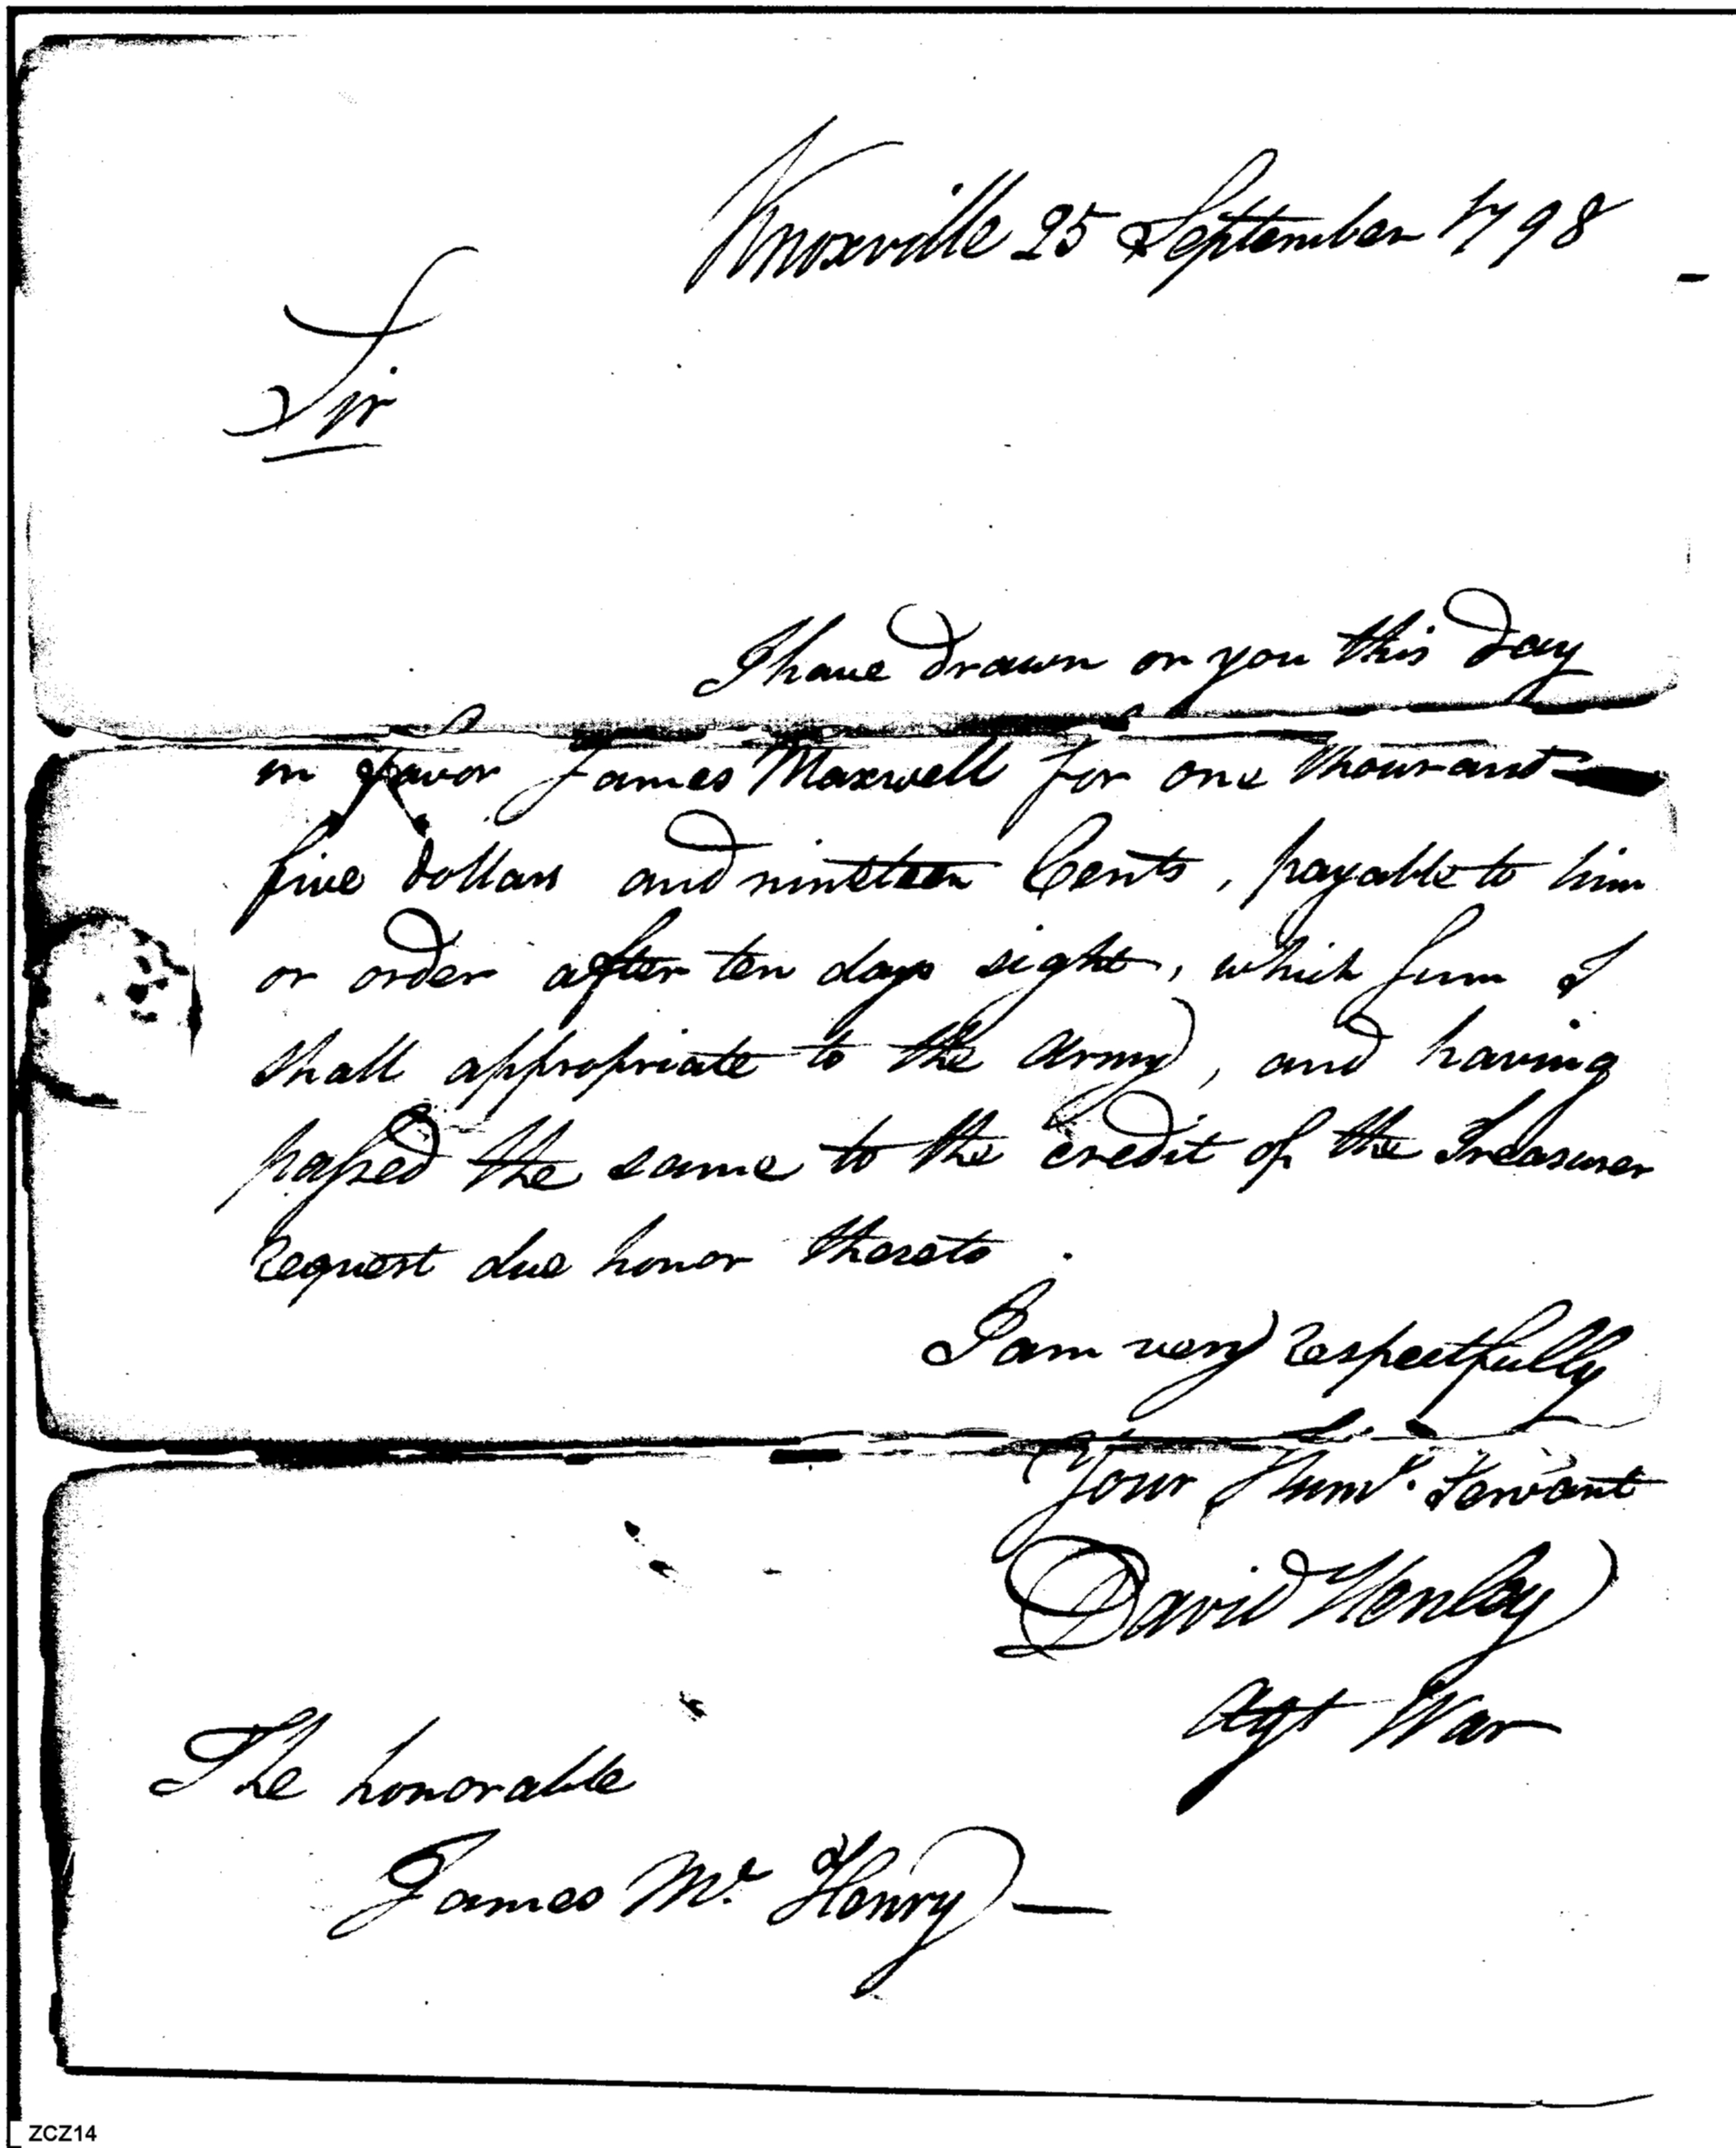 Knoxville 25 September 1798 -
Sir
I have drawn on you this day
in favor James Maxwell for one thousand
five dollars and nineteen Cents, payable to him
or order after ten days sight, which sum I
shall appropriate to the army, and having
passed the same to the credit of the Treasurer
request due honor thereto.
I am very respectfully
Your Hum.e Servant
David Henley
Agt War
The honorable
James Mc. Henry —
ZCZ14